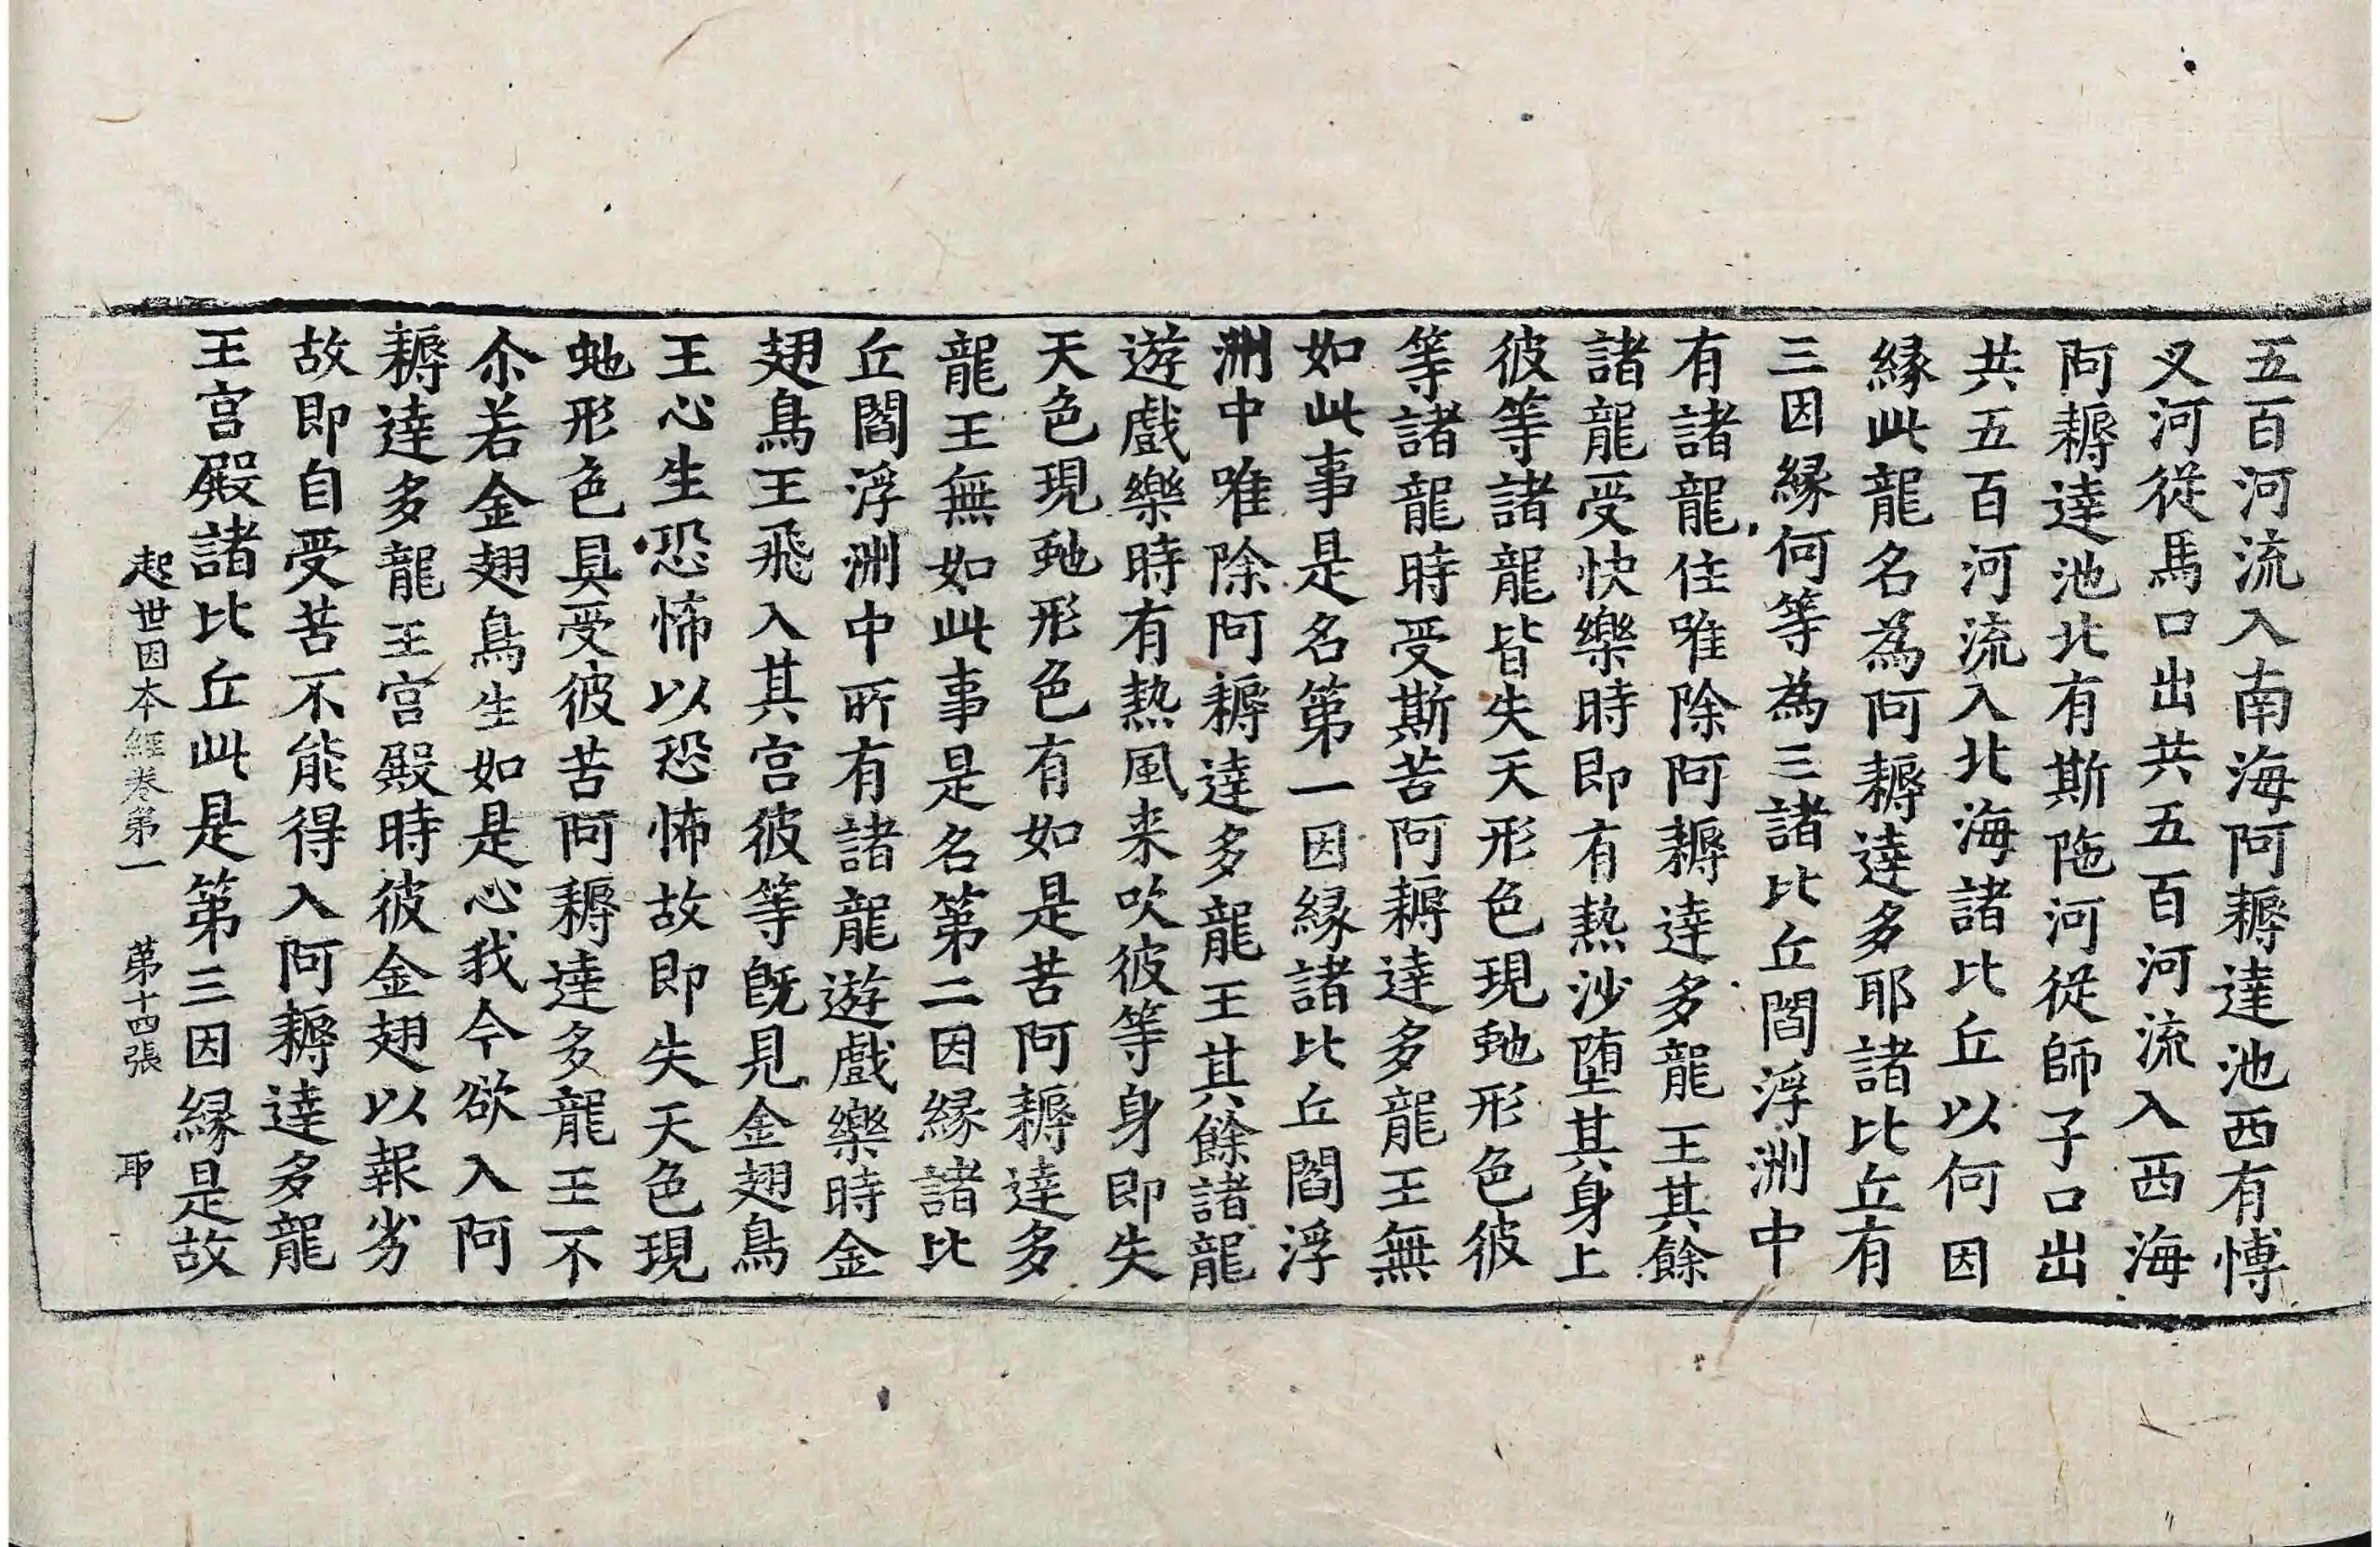 五百河流入南海阿耨達池西有愽
叉河從馬口出共五百河流入西海
阿耨達池北有斯陁河從師子口出
共五百河流入北海諸比丘以何因
縁此龍名為阿耨達多耶諸比丘有
三因縁何等為三諸比丘閻浮洲中
有諸龍住唯除阿耨達多龍王其餘
諸龍受快樂時即有熱沙墮其身上
彼等諸龍皆失天形色現虵形色彼
等諸龍時受斯苦阿耨達多龍王無
如此事是名第一因縁諸比丘閻浮
洲中唯除阿耨達多龍王其餘諸龍
遊戲樂時有熱風来吹彼等身即失
天色現虵形色有如是苦阿耨達多
龍王無如此事是名第二因縁諸比
丘閻浮洲中所有諸龍遊戲樂時金
翅鳥王飛入其宮彼等旣見金翅鳥
王心生恐怖以恐怖故即失天色現
虵形色具受彼苦阿耨達多龍王不
尒若金翅鳥生如是心我今欲入阿
耨達多龍王宮殿時彼金翅以報劣
故即自受苦不能得入阿耨達多龍
王宮殿諸比丘此是第三因縁是故
起世因本經卷第一 第十四張 耶